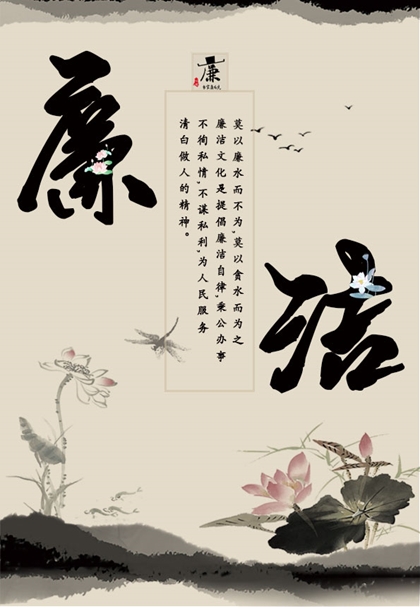 廉
洁
廉
莫以廉水而不为,莫以贪水而为之
廉洁文化是提倡廉洁自律,秉公办事
不徇私情,不谋私利,为人民服务
清白做人的精神。